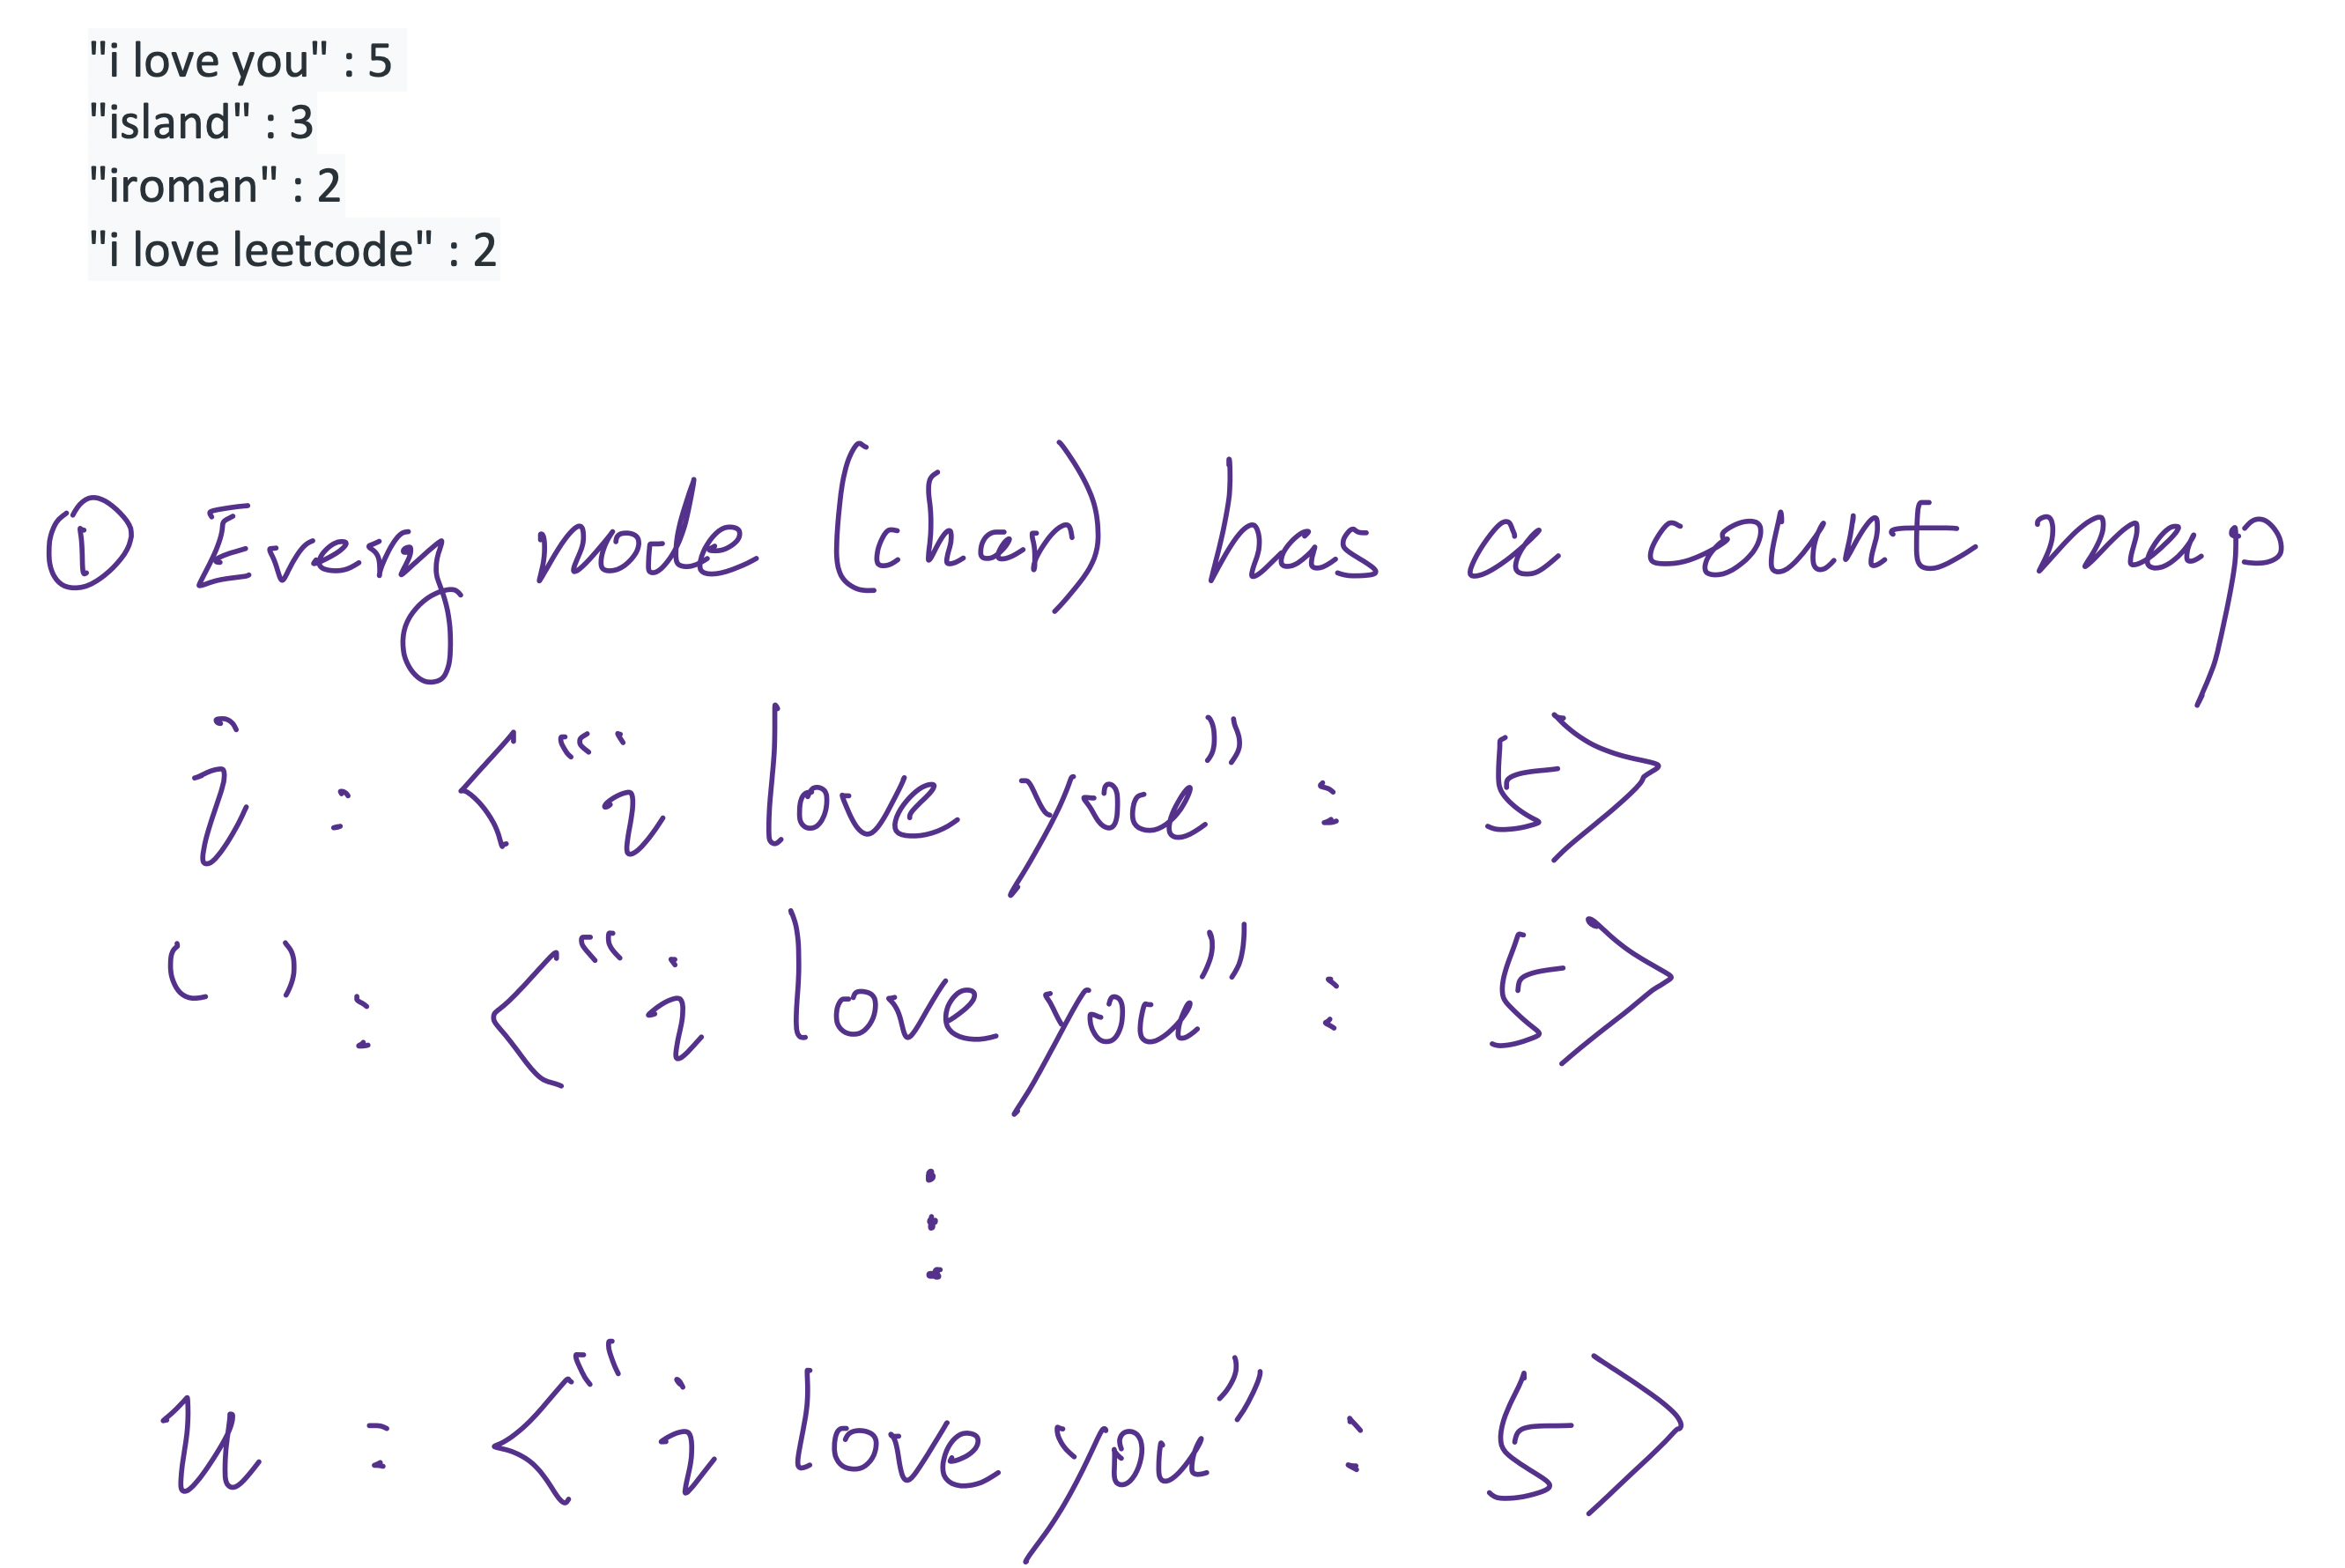 "i love you" : 5
"island" : 3
"iroman" : 2
"i love leetcode" : 2
① Every node (char) has a count map
i : <"i love you" : 5>
( ) : <"i love you" : 5>
⋮
u : <"i love you" : 5>